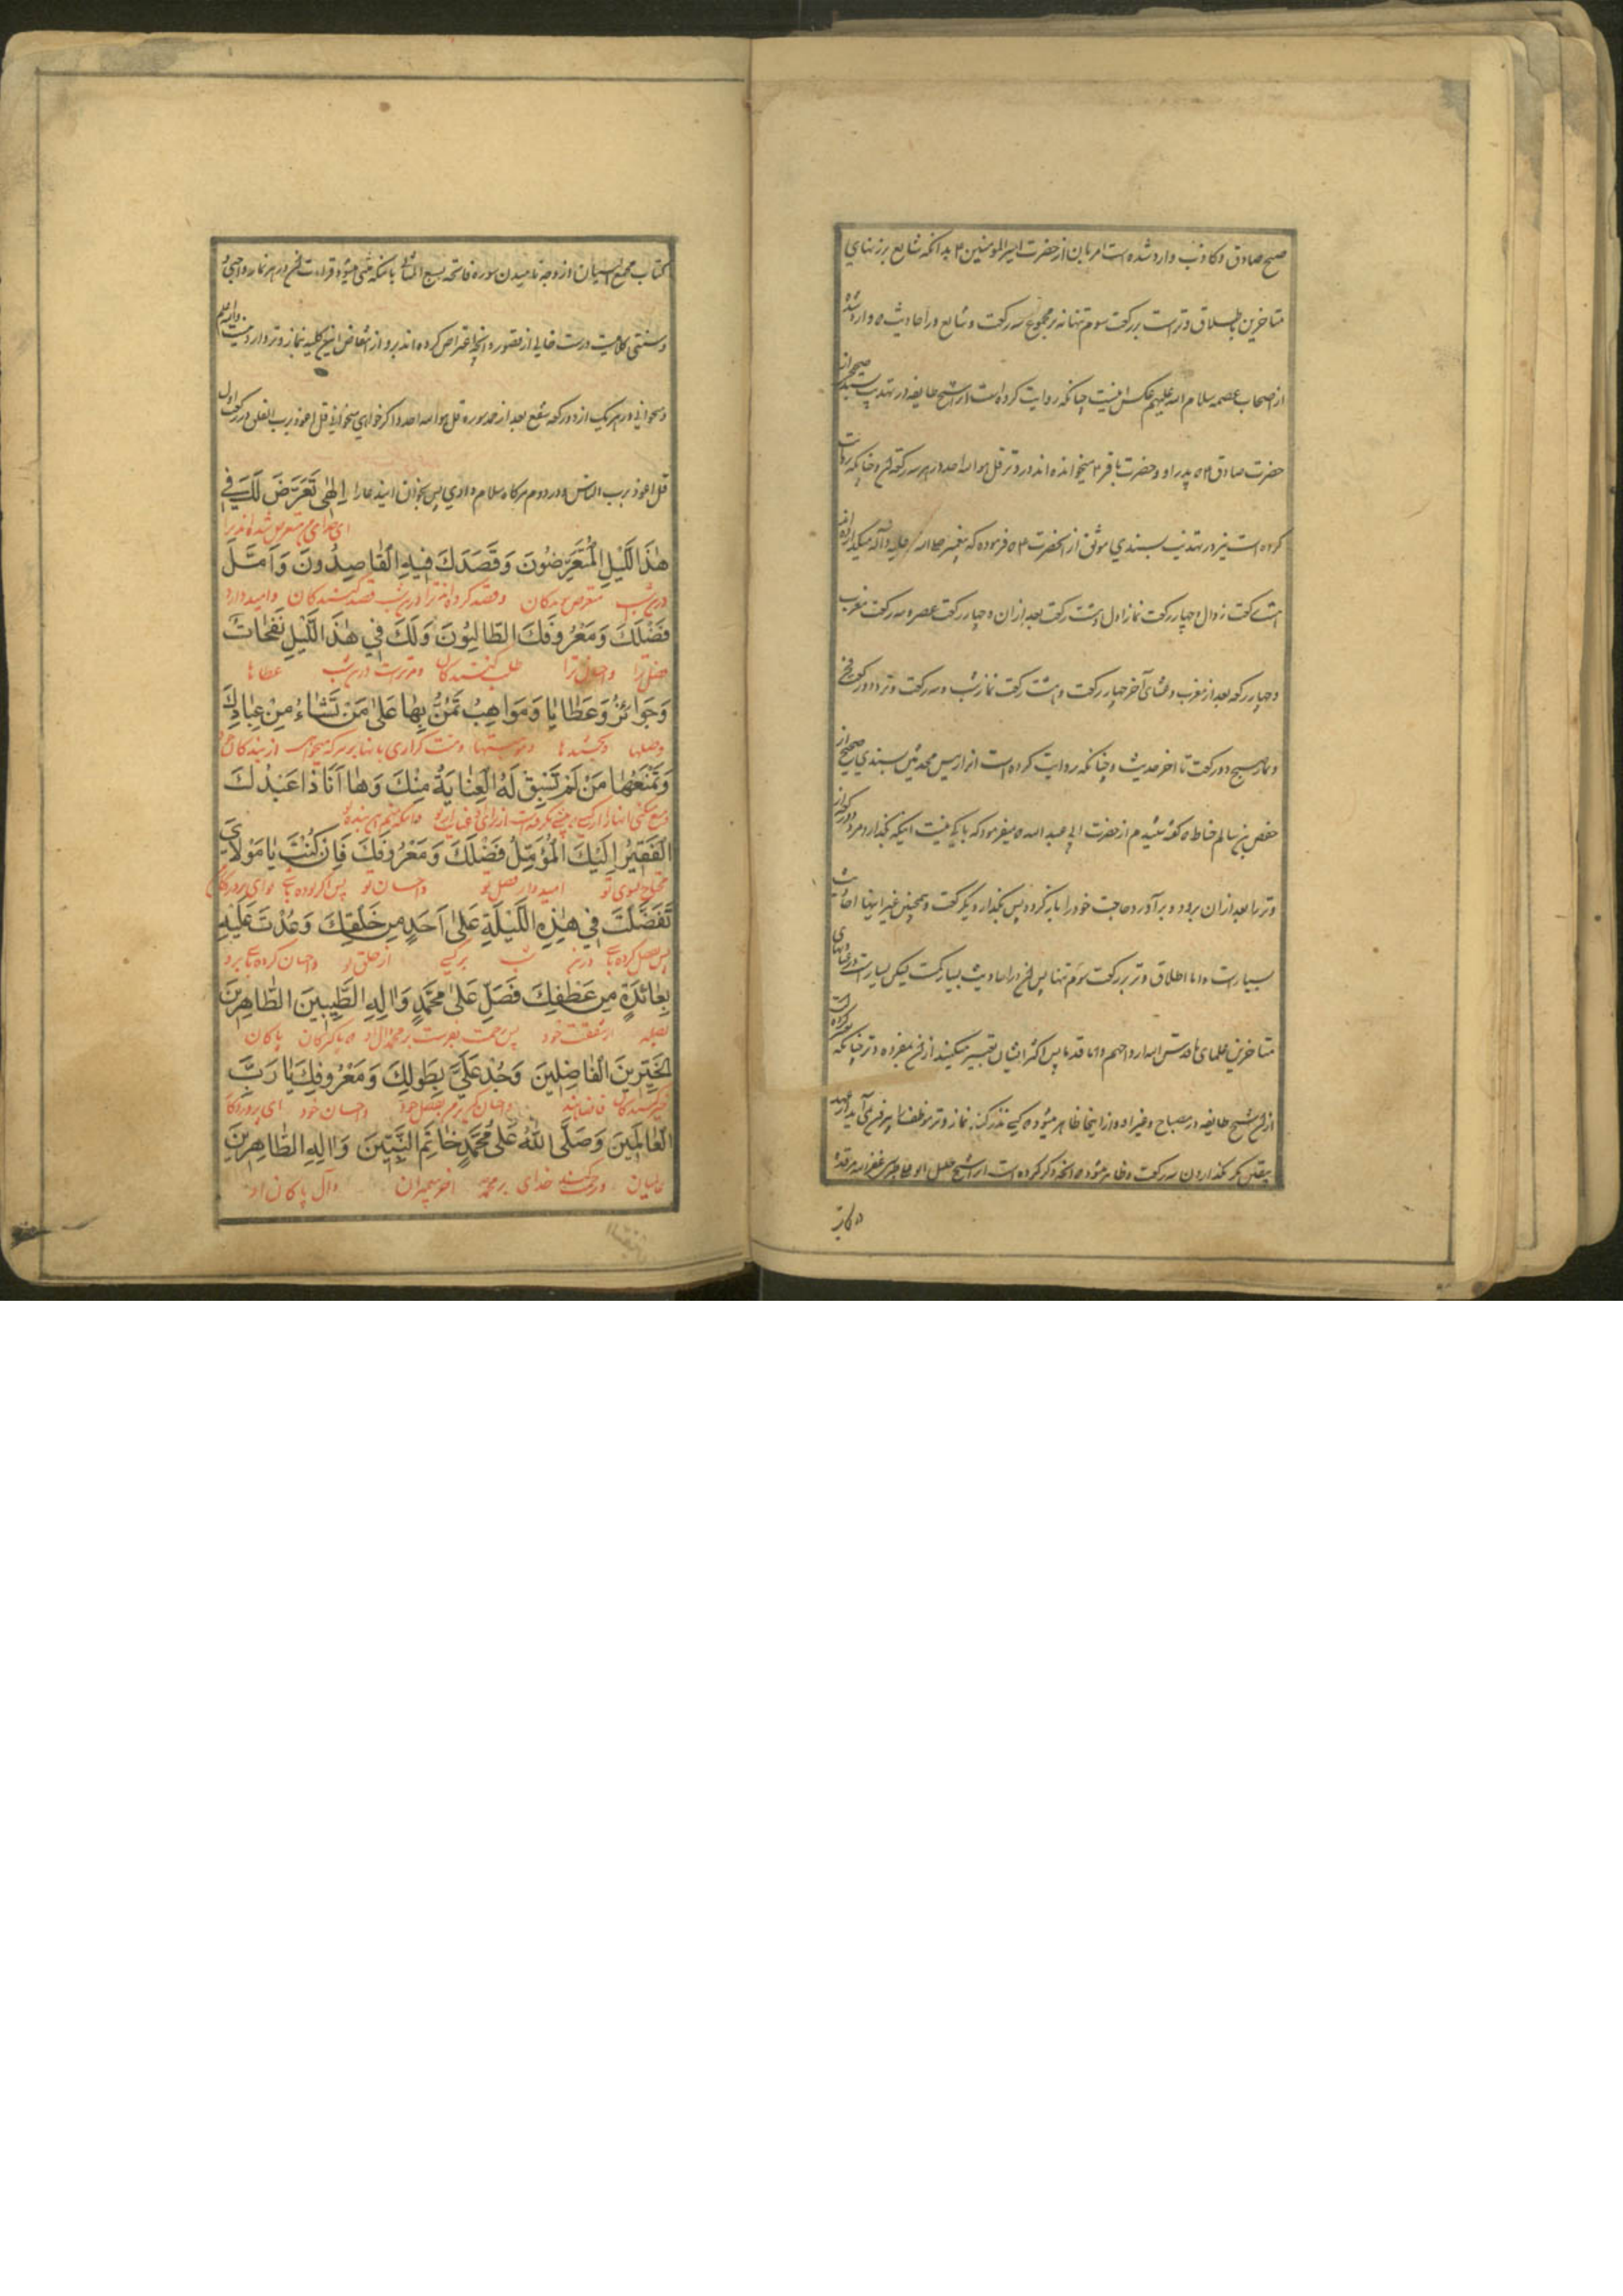 صبح صادق و کاذب وارد شده است امر بان از حضرت امیر المومنین ۴ بدانکه شایع بر زبنهای
متاخرین اطلاق وتر است بر رکعت سوم تنها نه بر مجموع سه رکعت و شایع در احادیث وارد شده
از اصحاب عصمه سلام الله علیهم عکس اینست چنانکه روایت کرده است از شیخ طایفه در تهذیب بسند صحیح از
حضرت صادق ۴ که پدر او حضرت باقر ۴ میخوانده اند در وتر قل هو الله احد در هر سه رکعت آن و چنانکه روایت
کرده است نیز در تهذیب بسندی موثق از آنحضرت ۴ که فرموده که پیغمبر صلی الله علیه و آله میگذارده اند
هشت رکعت زوال و چهار رکعت نماز اول و هشت رکعت بعد از ان و چهار رکعت عصر و سه رکعت مغرب
و چهار رکعه بعد از مغرب و عشای آخر چهار رکعت و هشت رکعت نماز شب و سه رکعت وتر و دو رکعت فجر
و نماز صبح دو رکعت تا اخر حدیث و چنانکه روایت کرده است انرا رییس محدثین بسندی صحیح از
حفص بن سالم حناط که گفت شنیدم از حضرت ابی عبد الله که میفرمود که باکی نیست اینکه بگذارد مرد دو رکعه از
وتر را بعد از ان برود و بر آورد حاجت خود را باز گردد پس بگذارد یک رکعت و همچنین غیر اینها احادیث
بسیارست و اما اطلاق وتر بر رکعت سوم تنها پس آن در احادیث بسیار کمست لیکن بسیار است در عبارتهای
متاخرین علمای ما قدس الله ارواحهم و اما قدما پس اکثر ایشان تعبیر میکنند از آن بمفرده وتر چنانکه کرده است
ازان شیخ طایفه در مصباح و غیر او و از اینجا ظاهر میشود که کسی نذر کند نماز وتر موظف را بیرون نمی آید از عهده
بیقین مگر بگذاردن سه رکعت و ظاهر میشود که آنچه ذکر کرده است از شیخ جلیل ابو علی طبرسی عفر الله مرقده
در کتاب
کتاب مجمع البیان از وجه نامیدن سوره فاتحه بسبع المثانی بانکه مثنی میشود قراءت آن در هر نماز واجبی
و سنتی کلامیست درست خالی از قصور و آنچه اعتراض کرده اند برو از انتقاض این کلیه بنماز وتر وارد نیست والله اعلم
و میخوانی در هر یک از دو رکعه شفع بعد از حمد سوره قل هو الله احد و اگر خواهی میخوانی قل اعوذ برب الفلق در رکعت اول
قل اعوذ برب الناس در دوم و هرگاه سلام دادی پس بخوان ایندعا را اِلٰهی تَعَرَّضَ لَكَ فِی
ای خدای من متعرض شده اند ترا
هٰذَا اللَّيْلِ الْمُتَعَرِّضُونَ وَقَصَدَكَ فِيهِ الْقَاصِدُونَ وَاَمَّلَ
درین شب متعرض شوندگان و قصد کرده اند ترا درین شب قصد کنندگان و امید دارد
فَضْلَكَ وَمَعْرُوفَكَ الطَّالِبُونَ وَلَكَ فِي هٰذَا اللَّيْلِ نَفَحَاتٌ
فضل ترا و احسان ترا طلب کنندگان و مر تراست درین شب عطاها
وَجَوَائِزُ وَعَطَايَا وَمَوَاهِبُ تَمُنُّ بِهَا عَلٰى مَنْ تَشَاءُ مِنْ عِبَادِكَ
و صلها و بخششها و موهبتها و منت گزاری بانها بر هر که میخواهی از بندگان خود
وَتَمْنَعُهَا مَنْ لَمْ تَسْبِقْ لَهُ الْعِنَايَةُ مِنْكَ وَهَا اَنَا ذَا عَبْدُكَ
الْفَقِيرُ اِلَيْكَ الْمُؤَمِّلُ فَضْلَكَ وَمَعْرُوفَكَ فَاِنْ كُنْتَ يَا مَوْلَايَ
محتاج بسوی تو امیدوار فضل تو و احسان تو پس اگر بوده باشی تو ای پروردگار
تَفَضَّلْتَ فِي هٰذِهِ اللَّيْلَةِ عَلٰى اَحَدٍ مِنْ خَلْقِكَ وَعُدْتَ عَلَيْهِ
پس فضل کرده باشی درین شب بر کسی از خلق تو و احسان کرده باشی برو
بِعَائِدَةٍ مِنْ عَطْفِكَ فَصَلِّ عَلٰى مُحَمَّدٍ وَاٰلِهِ الطَّيِّبِينَ الطَّاهِرِينَ
بصله از شفقت خود پس رحمت بفرست بر محمد و آل او که پاکیزگان پاکان
الْخَيِّرِينَ الْفَاضِلِينَ وَجُدْ عَلَيَّ بِطَوْلِكَ وَمَعْرُوفِكَ يَا رَبَّ
خیر کنندگان فاضلانند و احسان کن بر من بفضل خود و احسان خود ای پروردگار
الْعَالَمِينَ وَصَلَّى اللّٰهُ عَلٰى مُحَمَّدٍ خَاتَمِ النَّبِيِّينَ وَاٰلِهِ الطَّاهِرِينَ
عالمیان و رحمت کند خدای بر محمد اخر پیغمبران و آل پاکان او